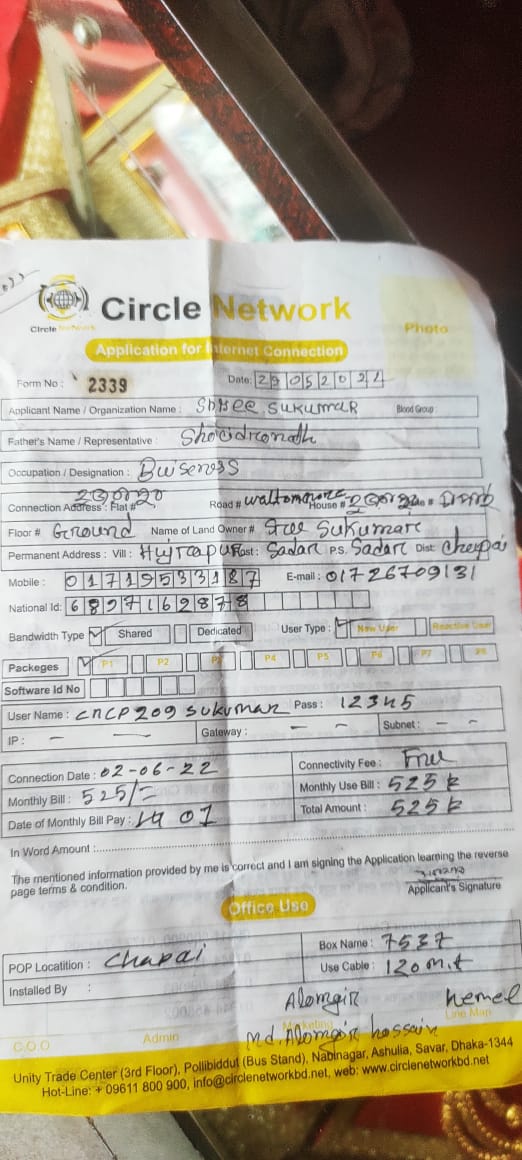 Circle Network
Circle Network
Photo
Application for Internet Connection
Form No : 2339 Date:
Applicant Name / Organization Name : Shree Sukumar Blood Group :
Father's Name / Representative :
Occupation / Designation : Buiseness
Connection Address : Flat # Road # House #
Floor # Ground Name of Land Owner # Sree Sukumar
Permanent Address : Vill : Post: Sadar P.S. Sadar Dist: Chepai
Mobile : 01719533187 E-mail : 01726709131
National Id: 6897162878
Bandwidth Type Shared Dedicated User Type : New User Reactive User
Packeges P1 P2 P3 P4 P5 P6 P7 P8
Software Id No
User Name : cncp209 sukumar Pass : 12345
IP : — — Gateway : — — Subnet : — —
Connection Date : 02-06-22 Connectivity Fee : Free
Monthly Bill : 525/= Monthly Use Bill : 525
Date of Monthly Bill Pay : 01 Total Amount : 525
In Word Amount :
The mentioned information provided by me is correct and I am signing the Application learning the reverse
page terms & condition. Applicant's Signature
Office Use
POP Locatition : Chapai Box Name : 7537
Use Cable : 120 m.t
Installed By :
Alomgir hemel
C.O.O Admin Marketing Line Man
Md. Alomgir hossain
Unity Trade Center (3rd Floor), Pollibiddut (Bus Stand), Nabinagar, Ashulia, Savar, Dhaka-1344
Hot-Line: + 09611 800 900, info@circlenetworkbd.net, web: www.circlenetworkbd.net